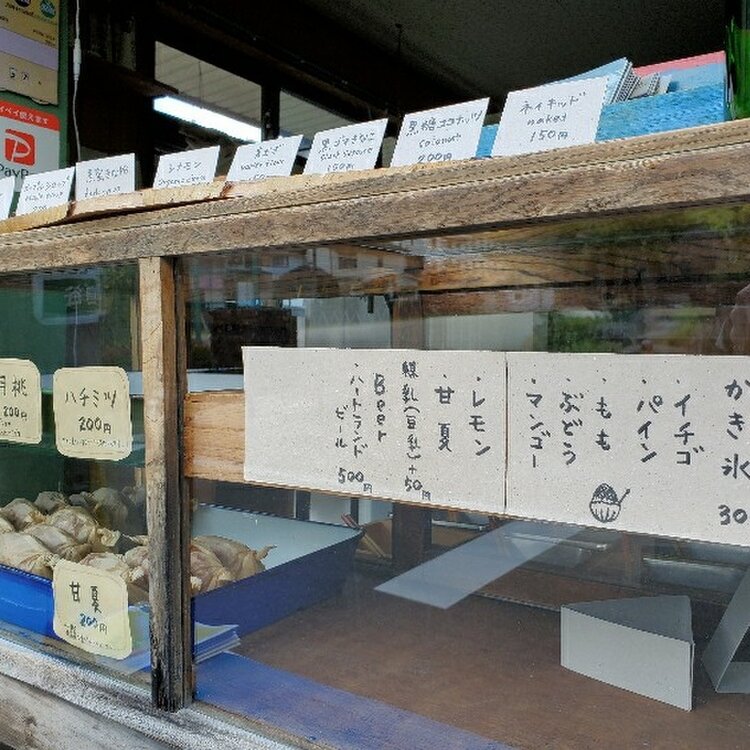 ペイペイ使えます
PayPay
シナモン
黒ゴマきなこ
150円
黒糖ココナッツ
coconut
200円
ネイキッド
naked
150円
月桃
200円
ハチミツ
200円
甘夏
200円
かき氷
30
・イチゴ
・パイン
・もも
・ぶどう
・マンゴー
・レモン
・甘夏
練乳(豆乳)+50円
Beer
・ハートランドビール
500円